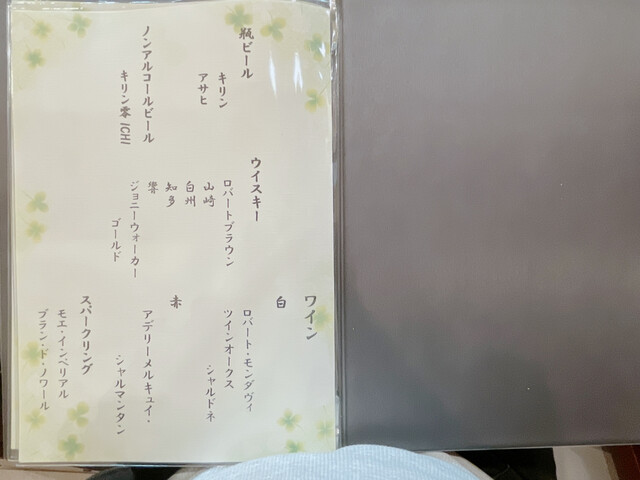 瓶ビール
キリン
アサヒ
ノンアルコールビール
キリン零ICHI
ウイスキー
ロバートブラウン
山崎
白州
知多
響
ジョニーウォーカー
ゴールド
ワイン
白
ロバート・モンダヴィ
ツインオークス
シャルドネ
赤
アデリーメルキュイ・
シャルマンタン
スパークリング
モエ・インペリアル
ブラン・ド・ノワール